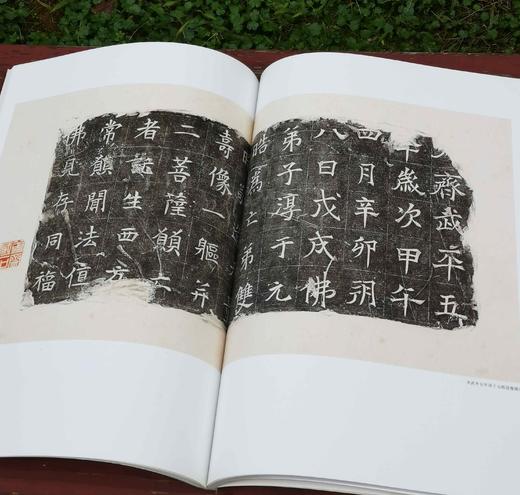 齊武平五
年歲次甲午
四月辛卯朔
八日戊戌佛
弟子淳于元
皓為亡弟雙
壽像一軀并
二菩薩願亡
者託生西方
常願聞法值
佛見存同福